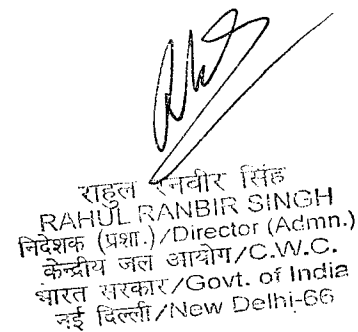 राहुल रनवीर सिंह
RAHUL RANBIR SINGH
निदेशक (प्रशा.)/Director (Admn.)
केन्द्रीय जल आयोग/C.W.C.
भारत सरकार/Govt. of India
नई दिल्ली/New Delhi-66